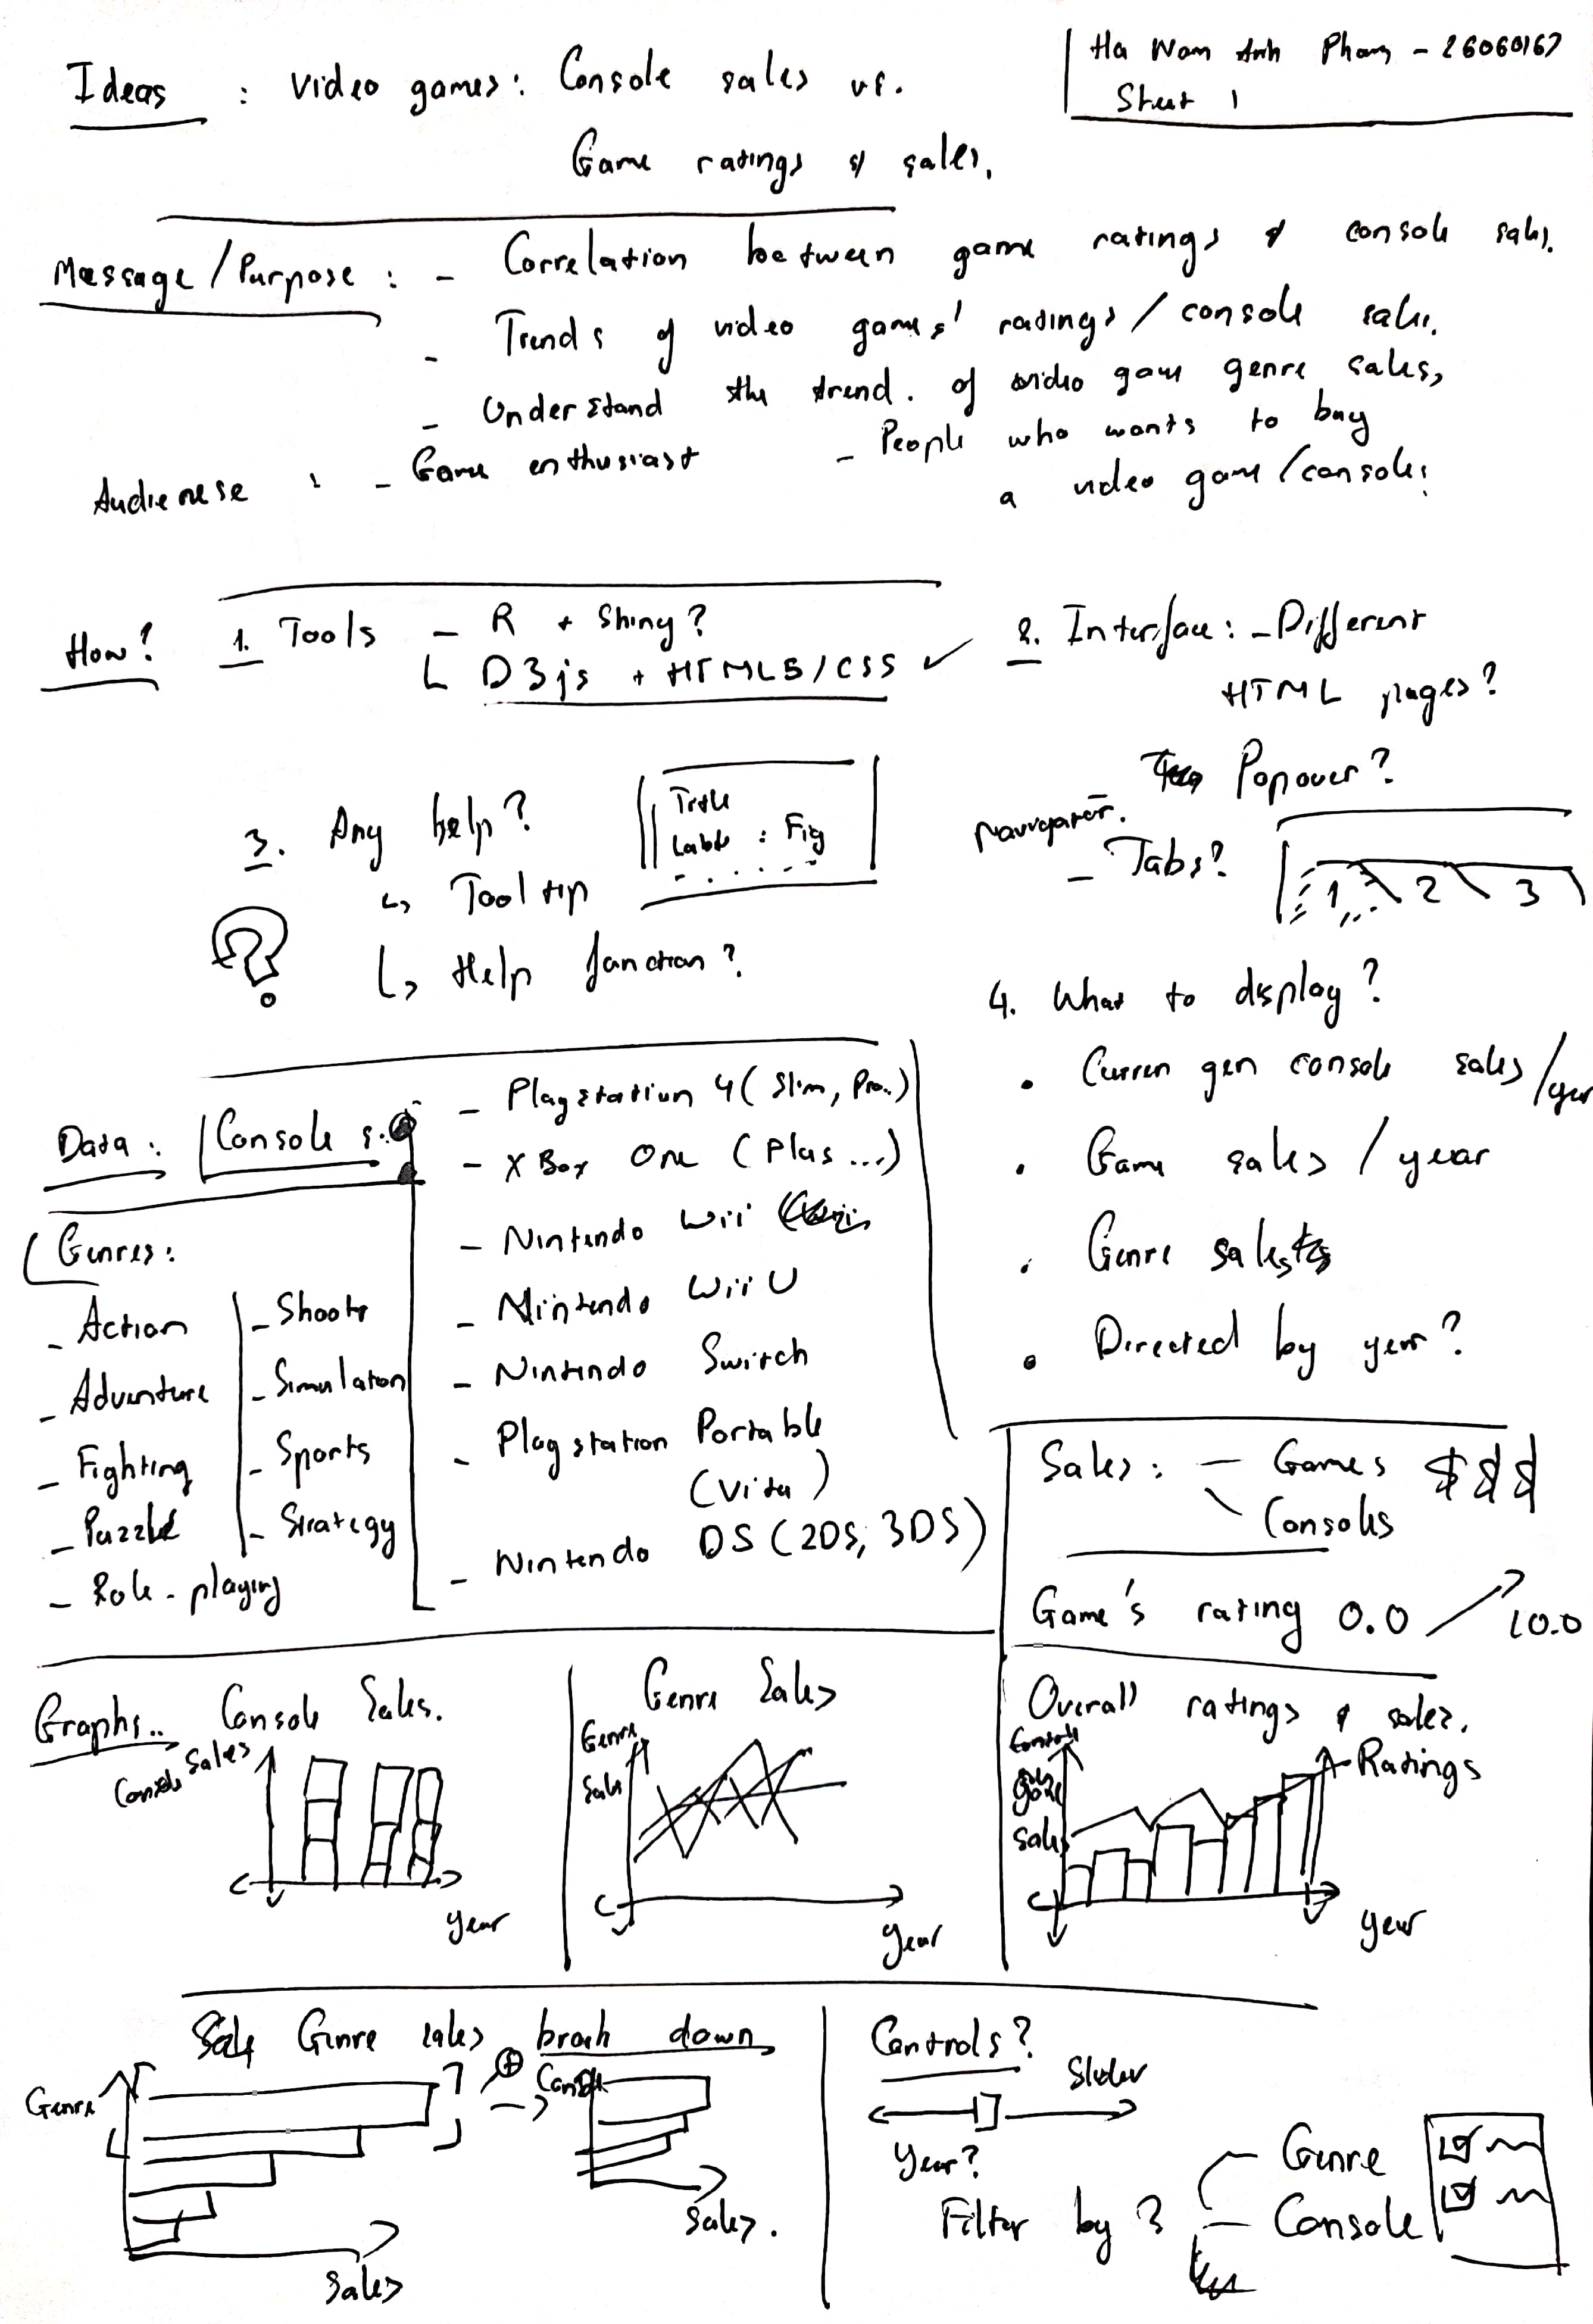 Ha Nam Anh Phang - 26060167
Sheet 1
Ideas : Video games: Console sales vs.
Game ratings & sales.
Message/Purpose : - Correlation between game ratings & console sales.
- Trends of video games' ratings / console sales.
- Understand the trend. of video game genre sales,
Audienese : - Game enthusiast - People who wants to buy
a video game / console.
How? 1. Tools - R + Shiny?
D3js + HTML5/CSS ✓
2. Interface: - Different
HTML pages?
- Popover?
Navigator.
- Tabs?
1 2 3
3. Any help?
↳ Tooltip
↳ Help function?
?
Title
Label : Fig
4. What to display?
• Curren gen console sales / year
• Game sales / year
• Genre sales
• Directed by year?
Data: Console s:
- Playstation 4 (Slim, Pro..)
- XBox One (Plus ...)
- Nintendo Wii
- Nintendo Wii U
- Nintendo Switch
- Playstation Portable
(Vita)
- Nintendo DS (2DS, 3DS)
Genres:
- Action
- Adventure
- Fighting
- Puzzle
- Role-playing
- Shooter
- Simulation
- Sports
- Strategy
Sales: - Games $$$
Consoles
Game's rating 0.0 10.0
Graphs.. Console Sales.
Console Sales
year
Genre Sales
Genre
Sales
year
Overall ratings & sales.
Sales
Ratings
year
Genre sales break down
Genre
Sales
Console
Sales.
Controls?
Slider
Year?
Filter by?
Genre
Console